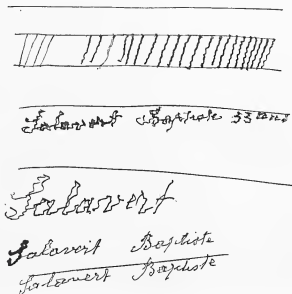 Salavert Baptiste 33 ans
Salavert
Salavert Baptiste
Salavert Baptiste